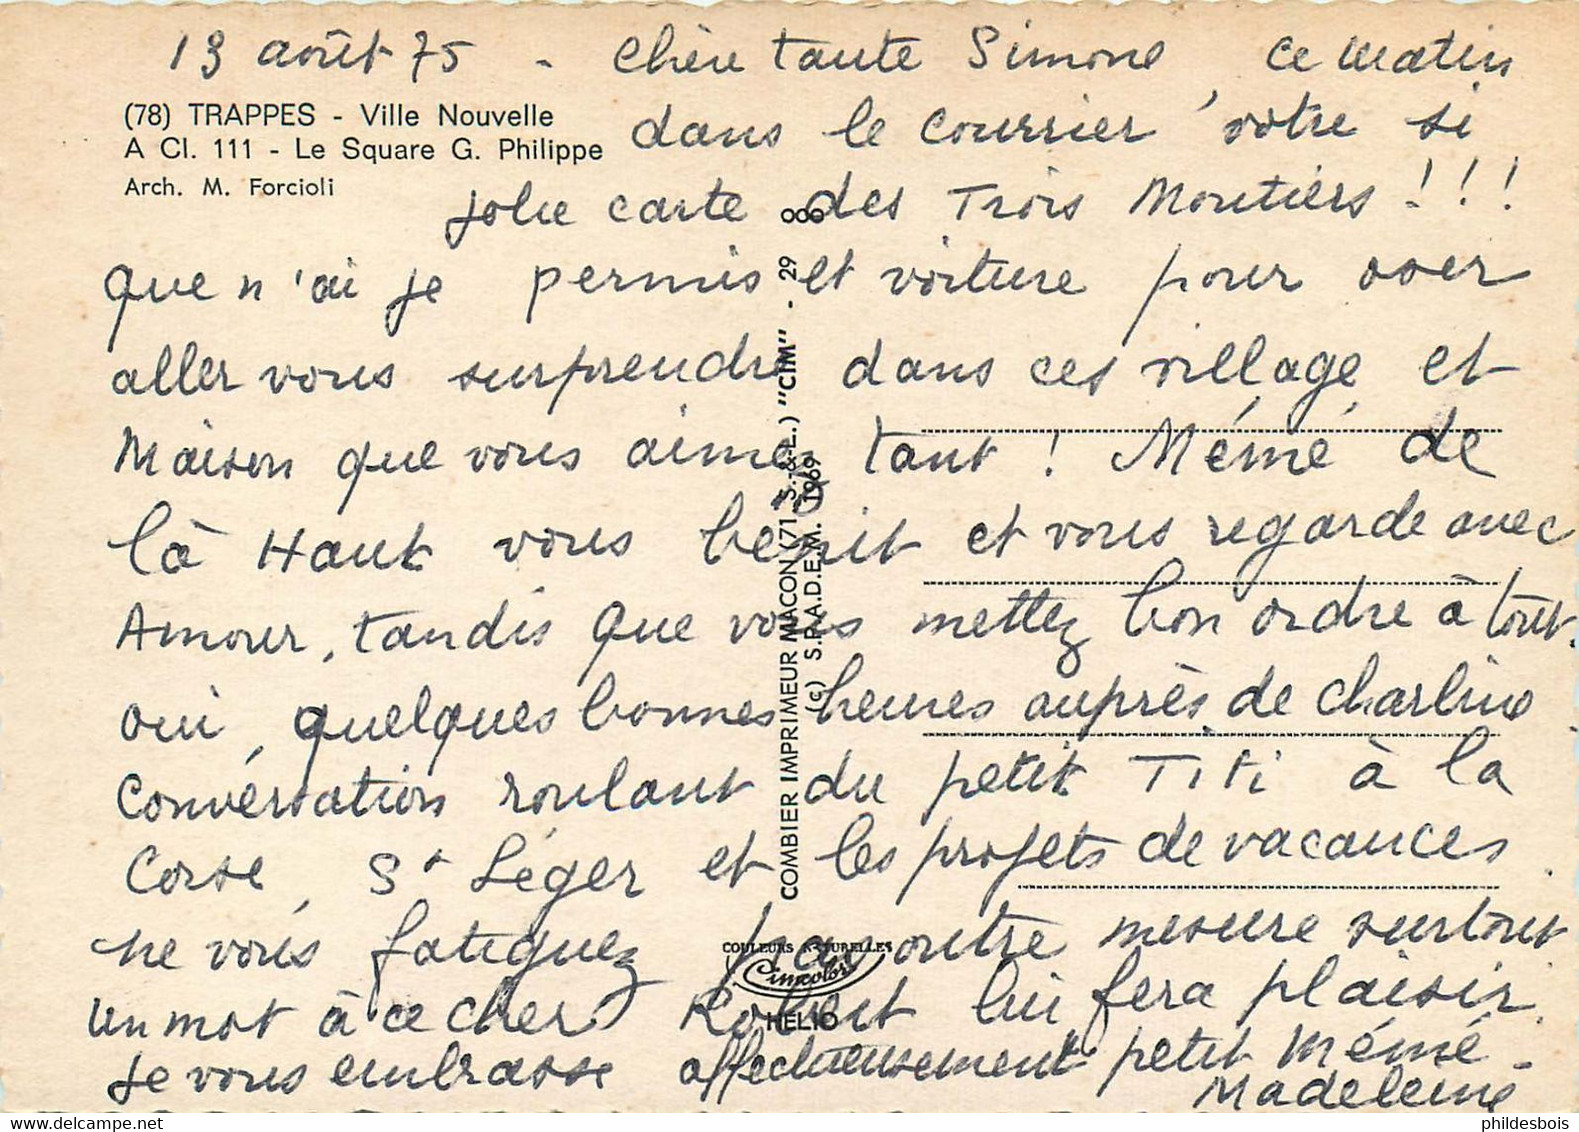 13 août 75 - Chère tante Simone ce matin
(78) TRAPPES - Ville Nouvelle
A Cl. 111 - Le Square G. Philippe
Arch. M. Forcioli
dans le courrier votre si
jolie carte des Trois Moutiers !!!
que n'ai je permis et voiture pour oser
aller vous surprendre dans ces village et
Maison que vous aimez tant ! Mémé de
là Haut vous bénit et vous regarde avec
Amour, tandis que vous mettez bon ordre à tout.
oui, quelques bonnes heures auprès de Charline.
Conversation roulant du petit Titi à la
Corse, St Léger et les projets de vacances.
ne vous fatiguez pas outre mesure surtout
un mot à ce cher Robert lui fera plaisir.
je vous embrasse affectueusement petit Mémé -
Madeleine
COMBIER IMPRIMEUR MACON (71 S.-&-L.) "CIM" - 29
(c) S.P.A.D.E.M. 1969
COULEURS NATURELLES
Cimcolor
HELIO
phildesbois